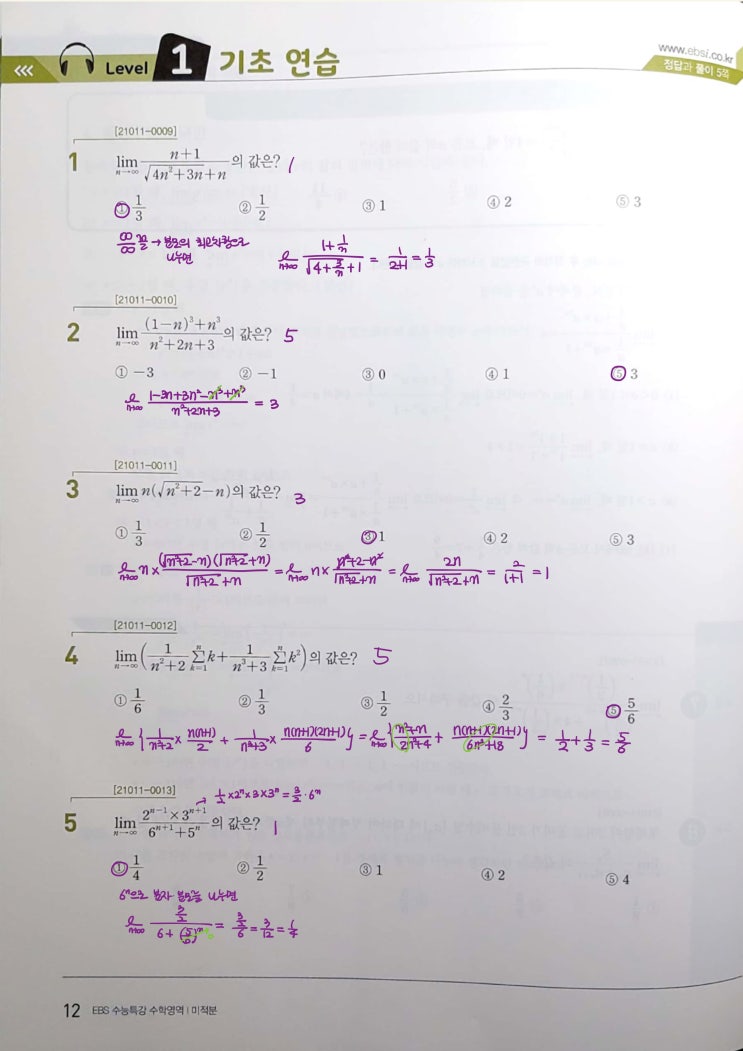 www.ebsi.co.kr
정답과 풀이 5쪽
Level 1 기초 연습
[21011-0009]
1 lim_{n→∞} (n+1)/(√(4n²+3n)+n) 의 값은? 1
① 1/3 ② 1/2 ③ 1 ④ 2 ⑤ 3
∞/∞ 꼴 → 분모의 최고차항으로
나누면
ℓ_{n→∞} (1+1/n)/(√(4+3/n)+1) = 1/(2+1) = 1/3
[21011-0010]
2 lim_{n→∞} ((1-n)³+n³)/(n²+2n+3) 의 값은? 5
① -3 ② -1 ③ 0 ④ 1 ⑤ 3
ℓ_{n→∞} (1-3n+3n²-n³+n³)/(n²+2n+3) = 3
[21011-0011]
3 lim_{n→∞} n(√(n²+2)-n)의 값은? 3
① 1/3 ② 1/2 ③ 1 ④ 2 ⑤ 3
ℓ_{n→∞} n × ((√(n²+2)-n)(√(n²+2)+n))/(√(n²+2)+n) = ℓ_{n→∞} n × (n²+2-n²)/(√(n²+2)+n) = ℓ_{n→∞} 2n/(√(n²+2)+n) = 2/(1+1) = 1
[21011-0012]
4 lim_{n→∞} (1/(n²+2) Σ_{k=1}^{n} k + 1/(n³+3) Σ_{k=1}^{n} k²)의 값은? 5
① 1/6 ② 1/3 ③ 1/2 ④ 2/3 ⑤ 5/6
ℓ_{n→∞} {1/(n²+2) × n(n+1)/2 + 1/(n³+3) × n(n+1)(2n+1)/6} = ℓ_{n→∞} {(n²+n)/(2n²+4) + n(n+1)(2n+1)/(6n³+18)} = 1/2 + 1/3 = 5/6
[21011-0013]
→ 1/2 × 2ⁿ × 3 × 3ⁿ = 3/2 · 6ⁿ
5 lim_{n→∞} (2^{n-1}×3^{n+1})/(6^{n+1}+5ⁿ) 의 값은? 1
① 1/4 ② 1/2 ③ 1 ④ 2 ⑤ 4
6ⁿ으로 분자 분모를 나누면
ℓ_{n→∞} (3/2)/(6+(5/6)ⁿ) = (3/2)/6 = 3/12 = 1/4
12 EBS 수능특강 수학영역 | 미적분